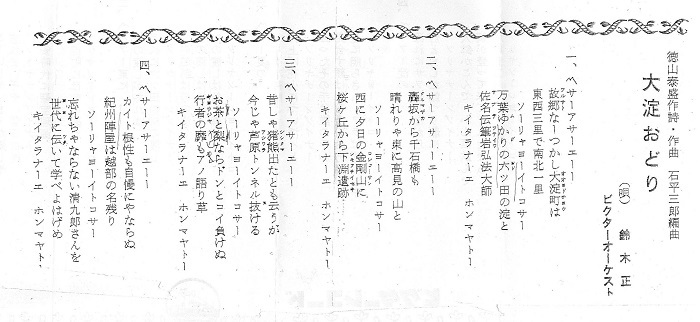 徳山泰盛作詩・作曲 石平三郎編曲
大淀おどり
(唄) 鈴木正
ビクターオーケスト
一、〽サーアサーエーー
故郷なーつかし大淀町は
東西三里で南北一里
ソーリャヨーイトコサー
万葉ゆかりの六ッ田の淀と
佐名伝籬岩弘法大師
キイタラナーエ ホンマヤトー
二、〽サーアサーエーー
轟坂から千石橋も
晴れりゃ東に高見の山と
ソーリャヨーイトコサー
西に夕日の金剛山に
桜ヶ丘から下淵遺跡
キイタラナーエ ホンマヤトー
三、〽サーアサーエーー
昔しゃ猪熊出たとも云うが
今じゃ芦原トンネル抜ける
ソーリャヨーイトコサー
お茶と梨ならドンとコイ負けぬ
行者の もアノ語り草
キイタラナーエ ホンマヤトー
四、〽サーアサーエーー
カイト根性も自慢にやならぬ
紀州陣屋は越部の名残り
ソーリャヨーイトコサー
忘れちゃならない清九郎さんを
世代に伝いて学べよはげめ
キイタラナーエ ホンマヤトー